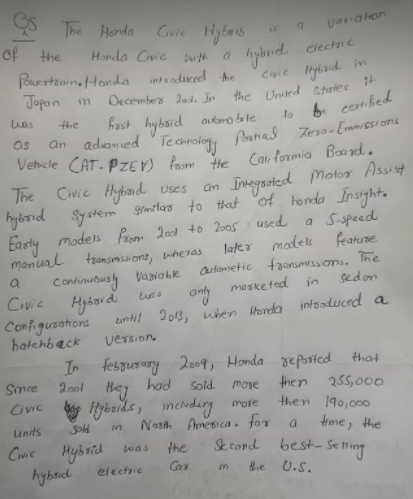 Q5 The Honda Civic Hybrid is a variation
of the Honda Civic with a hybrid electric
Powertrain. Honda introduced the Civic Hybrid in
Japan in December 2001. In the United States it
was the first hybrid automobile to be certified
as an advanced Technology Partial Zero-Emmissions
Vehicle (AT-PZEV) from the California Board.
The Civic Hybrid uses an Integrated Motor Assist
hybrid system similar to that of honda Insight.
Early models from 2001 to 2005 used a 5-speed
manual transmissions, wheras later models feature
a continuously variable autometic transmissions. The
Civic Hybrid was only marketed in sedan
Configurations until 2013, when Honda introduced a
hatchback version.
In februrary 2009, Honda reported that
Since 2001 they had sold more then 255,000
Civic Hybrids, including more then 190,000
units sold in North America. for a time, the
Civic Hybrid was the second best-selling
hybrid electric Car in the U.S.